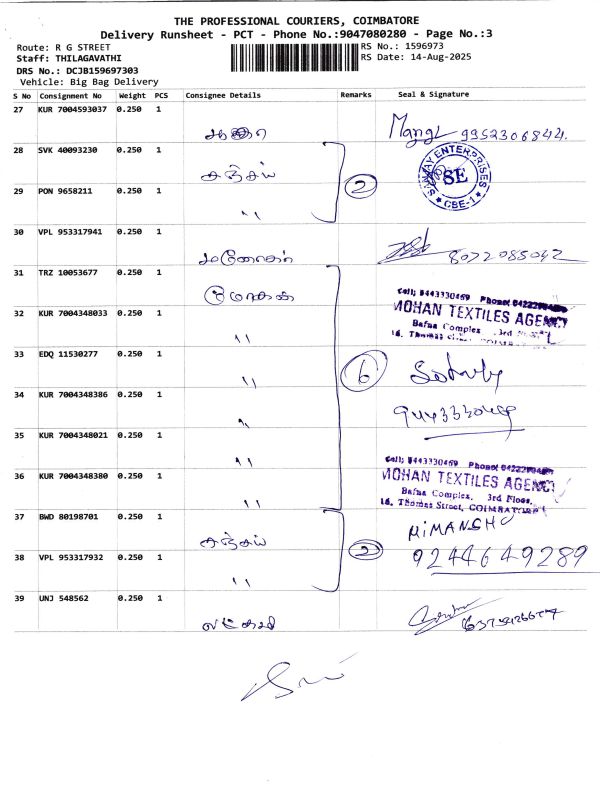 THE PROFESSIONAL COURIERS, COIMBATORE
Delivery Runsheet - PCT - Phone No.:9047080280 - Page No.:3
Route: R G STREET
RS No.: 1596973
Staff: THILAGAVATHI
RS Date: 14-Aug-2025
DRS No.: DCJB159697303
Vehicle: Big Bag Delivery
S No Consignment No Weight PCS Consignee Details Remarks Seal & Signature
27 KUR 7004593037 0.250 1
9952306844.
28 SVK 40093230 0.250 1 சஞ்சய் 2
SANJAY ENTERPRISES SE CBE-1
29 PON 9658211 0.250 1 "
30 VPL 953317941 0.250 1 8072085042
31 TRZ 10053677 0.250 1
Cell: 9443330469 Phone:
32 KUR 7004348033 0.250 1 "
MOHAN TEXTILES AGENCY
Bafna Complex, 3rd Floor,
16, Thomas
33 EDQ 11530277 0.250 1 " 6
34 KUR 7004348386 0.250 1 "
35 KUR 7004348021 0.250 1 "
36 KUR 7004348380 0.250 1 "
Cell: 9443330469 Phone:
MOHAN TEXTILES AGENCY
Bafna Complex, 3rd Floor,
16, Thomas Street, COIMBATORE
37 BWD 80198701 0.250 1 சஞ்சய் 2
HIMANSHU
38 VPL 953317932 0.250 1 " 9244649289
39 UNJ 548562 0.250 1